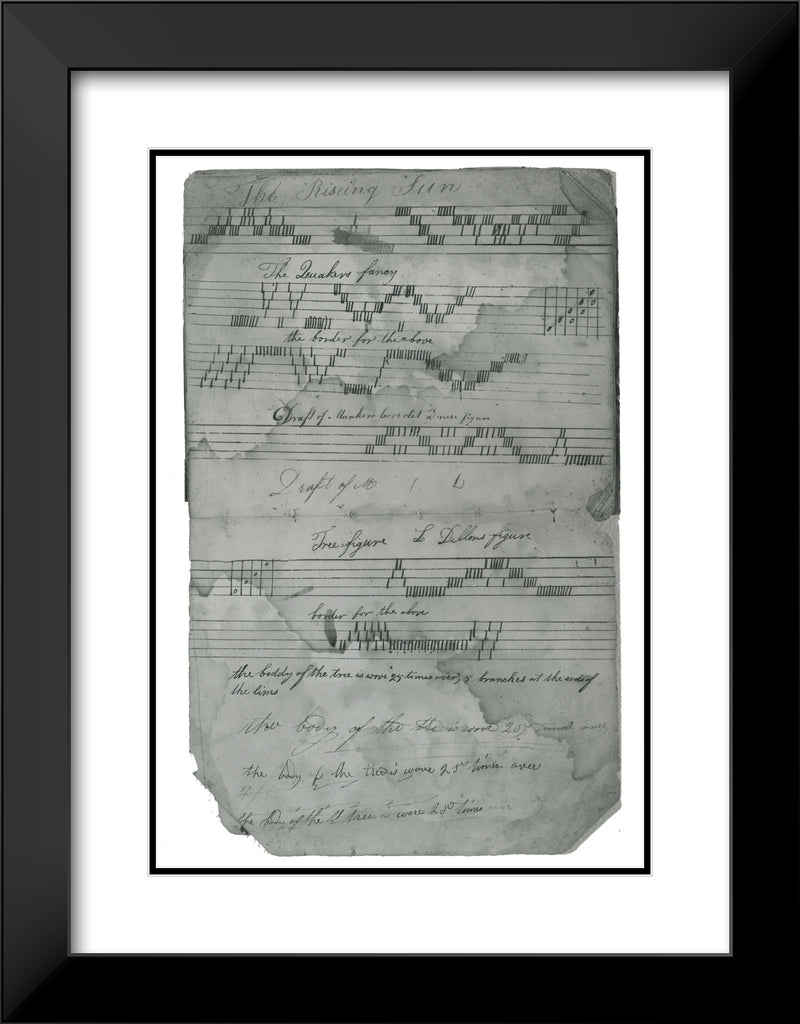 The Riseing Sun
The Quakers fancy
the border for the above
Draft of
Draft of M L
Tree figure L Dullons figure
border for the above
the boddy of the tree is wove 25 times over, 5 branches at the ends of
the lims
body of the tre is wove 25
the body of the tree is wove 25 times over
the body of the tree is wove 25 times